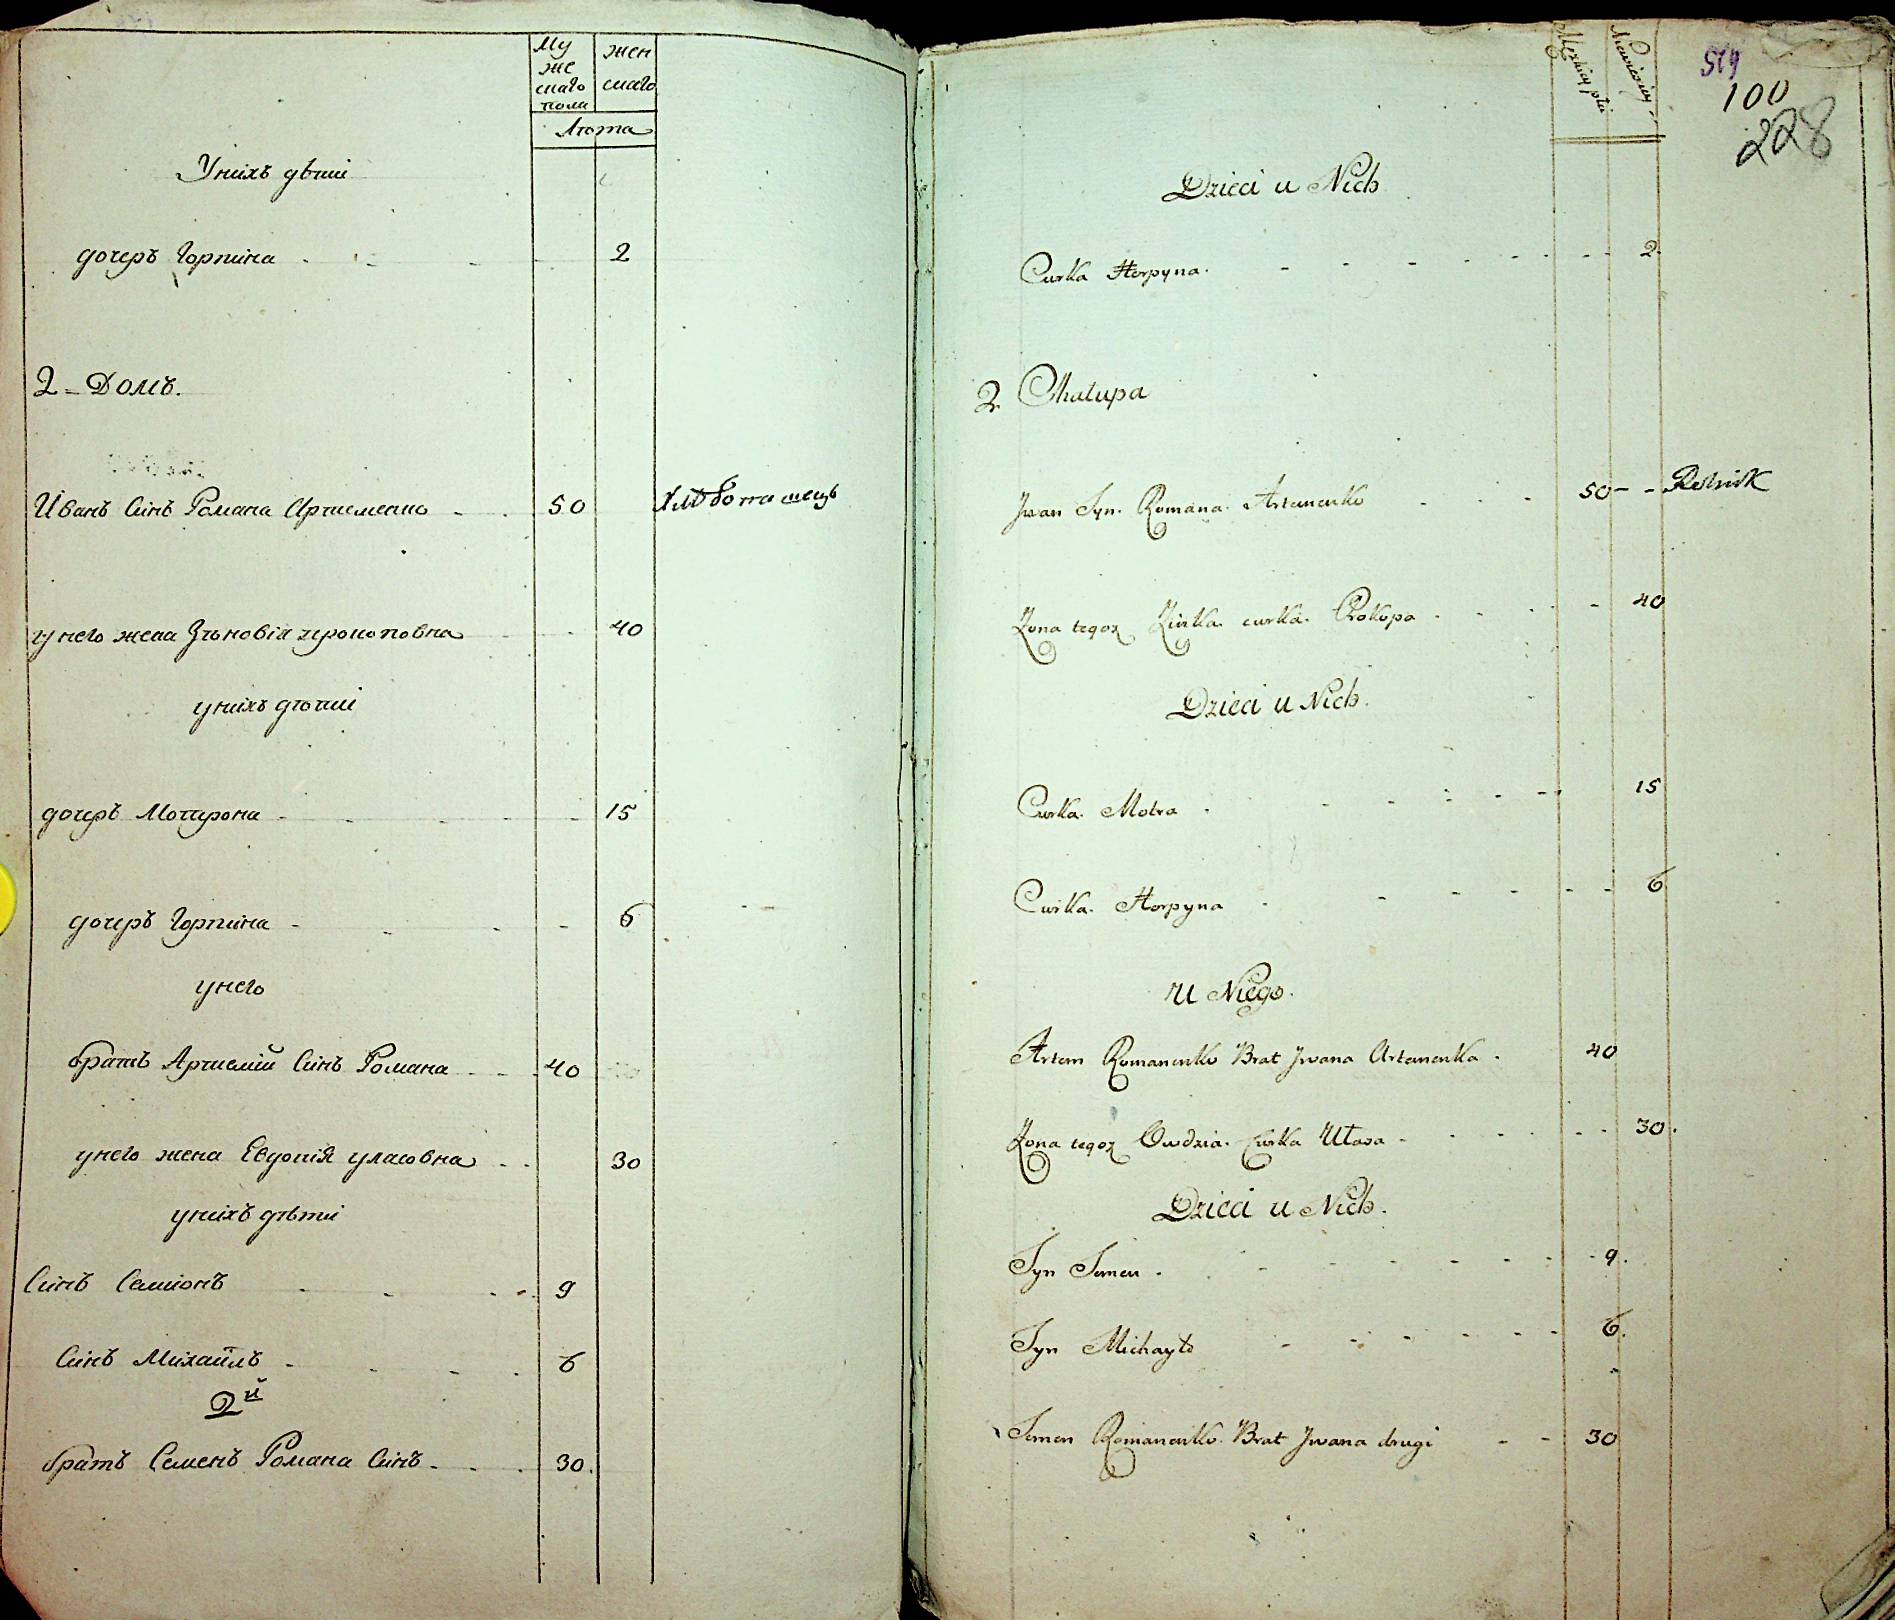 Му
же
скаго
пола
жен
скаго
Лѣта
Уних дѣти
дочеръ Горпина 2
2 - Домъ.
Иванъ Синъ Романа Артиеменко 50 Хлѣбопашець
унего жена Зѣновія прокоповна 40
унихъ дѣти
дочеръ Мотрона 15
дочеръ Горпина 6
унего
братъ Артиемій Синъ Романа 40
унего жена Евдокія уласовна 30
унихъ дѣти
Синъ Семионъ 9
Синъ Михаилъ 6
2й
братъ Семенъ Романа Синъ 30.
Męzkiey płci
Niewieściey
519
100
228
Dzieci u Nich
Curka Horpyna. 2.
2 Chałupa
Jwan Syn. Romana. Artemenko 50 - - Rolnik
Zona tegoz Zinka. curka. Prokopa 40
Dzieci u Nich.
Curka. Motra 15
Curka. Horpyna 6
U Niego.
Artem Romanenko Brat Jwana Artemenka. 40
Zona tegoz Owdzia. Curka Ułasa 30.
Dzieci u Nich.
Syn Semen. 9.
Syn Michayło 6.
Semen Romanenko. Brat Jwana drugi 30